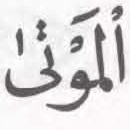 اْلمَوْتٰى